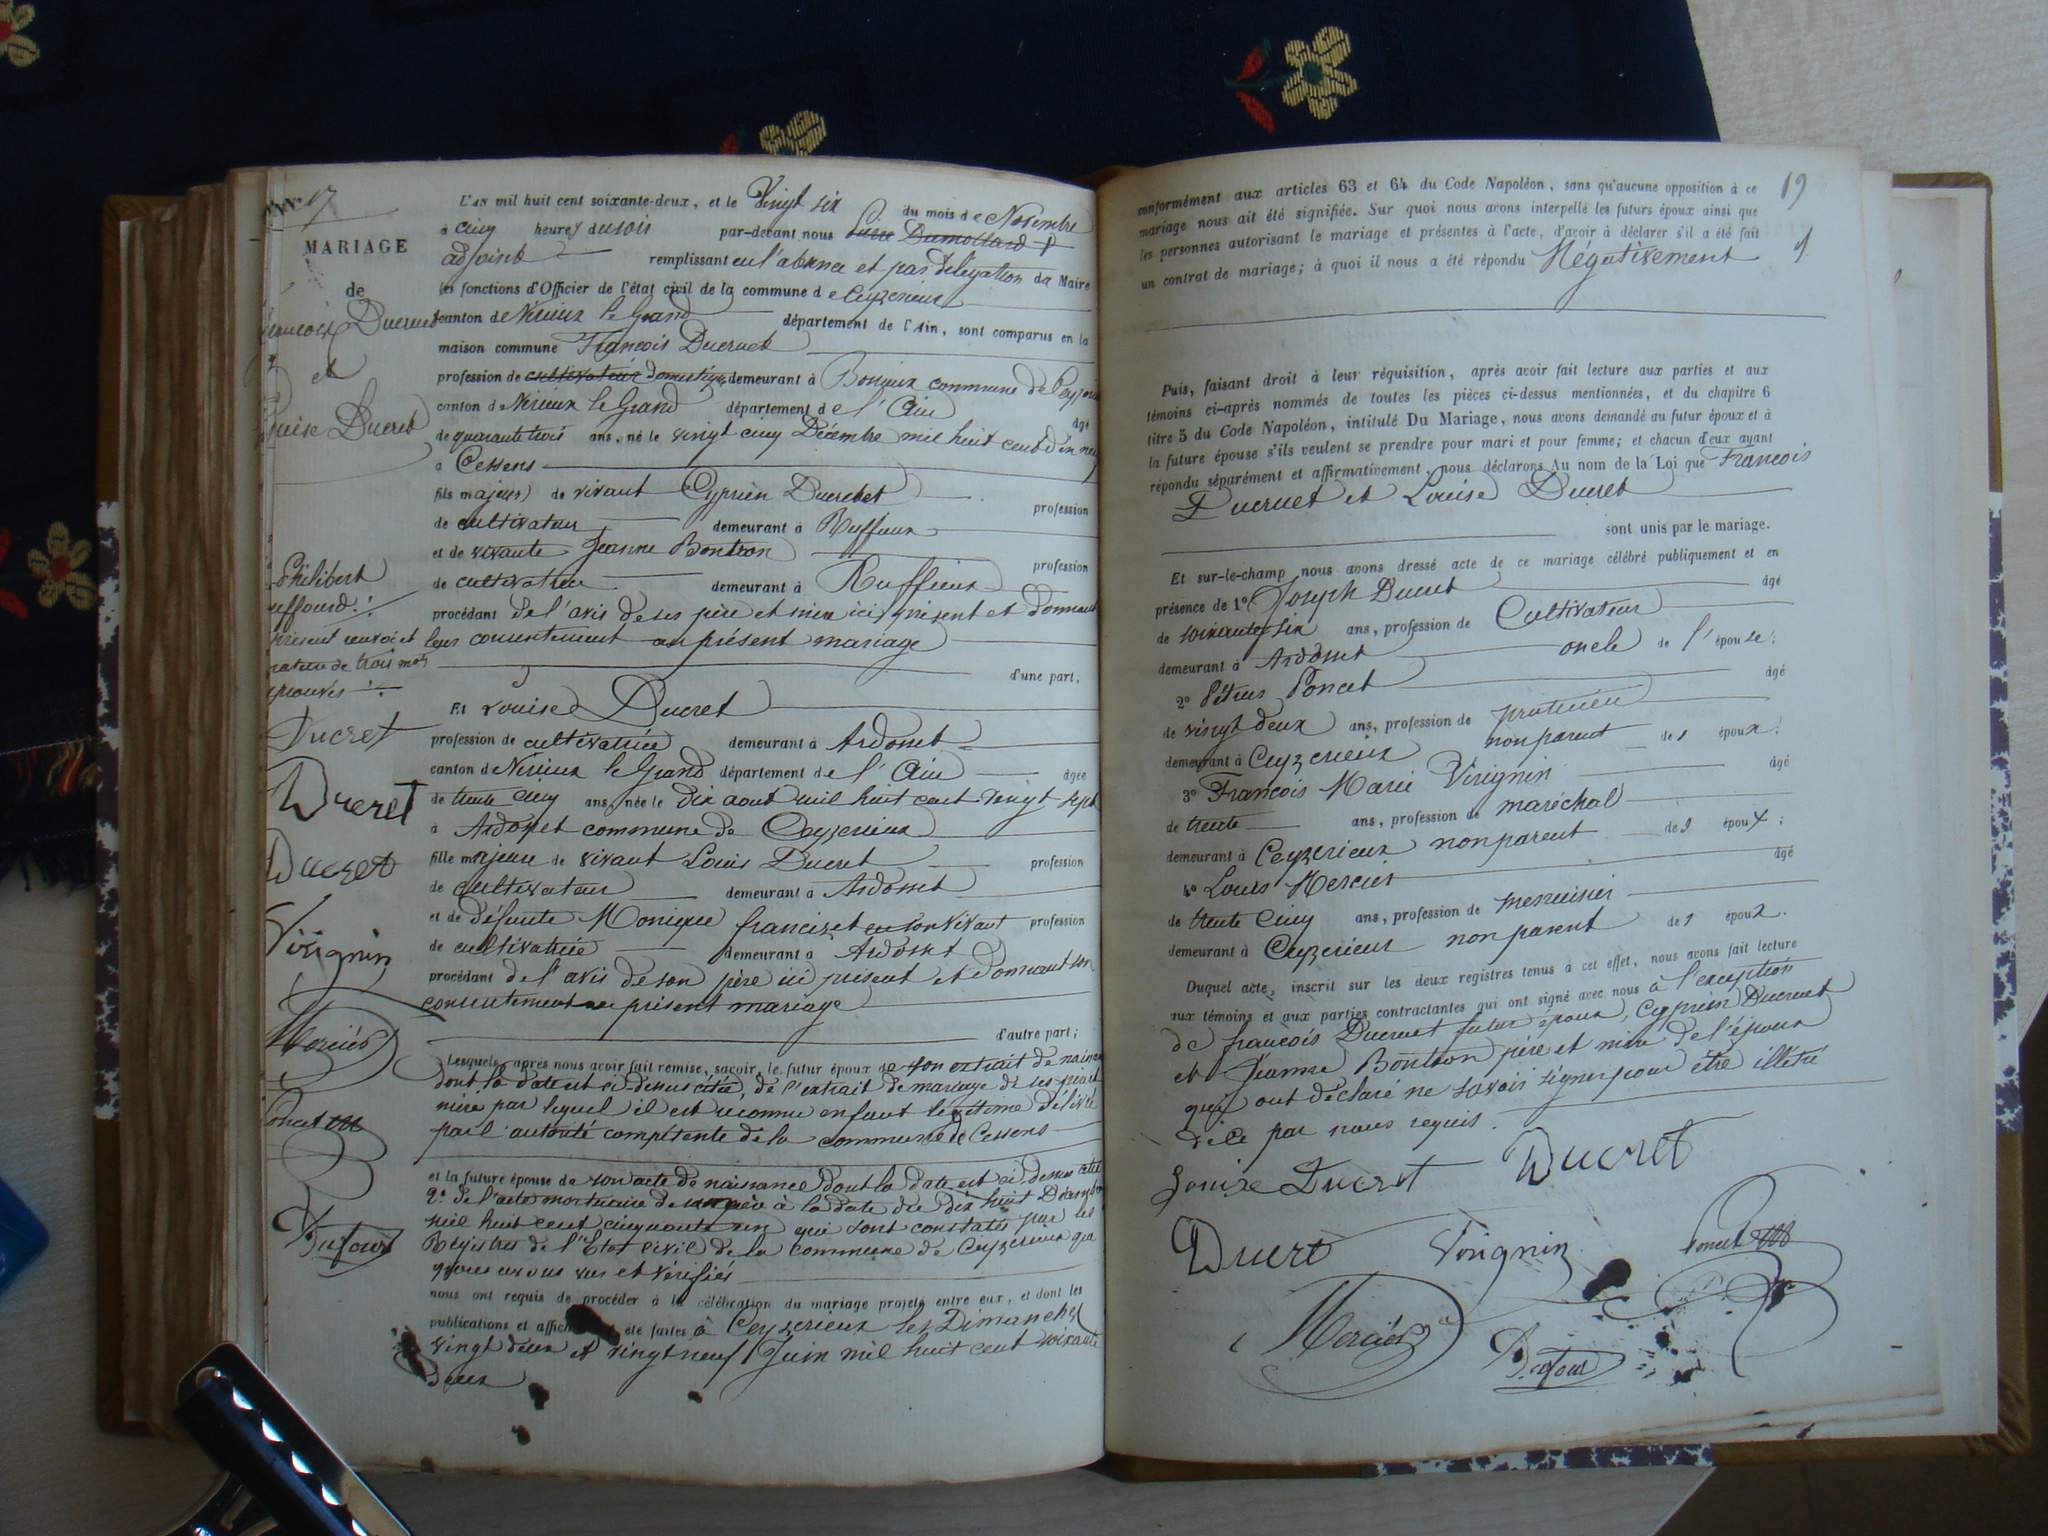 N° 17
MARIAGE
de
François Ducruet
et
Louise Ducret
Philibert
présent renvoi et
rature de trois mots
approuvés
Ducret
Ducret
Ducret
Virignin
Mercier
Poncet
Dufour
L'an mil huit cent soixante-deux, et le Vingt six
du mois de Novembre
à cinq heures du soir par-devant nous Dumollard
adjoint remplissant en l'absence et par délégation du Maire
les fonctions d'Officier de l'état civil de la commune de Ceyzerieux
canton de Virieux le Grand département de l'Ain, sont comparus en la
maison commune François Ducruet
profession de cultivateur domestique demeurant à commune de Ceyzerieux
canton de Virieux le Grand département de l'Ain âgé
de quarante trois ans, né le vingt cinq Décembre mil huit cent dix neuf
à Cessens
fils majeur de vivant Cyprien Ducruet profession
de cultivateur demeurant à Ruffieux
et de vivante Jeanne Bontron profession
de cultivatrice demeurant à Ruffieux
procédant de l'avis de ses père et mère ici présent et donnant
leur consentement au présent mariage
d'une part,
Et Louise Ducret
profession de cultivatrice demeurant à Ardosset
canton de Virieux le Grand département de l'Ain âgée
de trente cinq ans, née le dix aout mil huit cent vingt sept
à Ardosset commune de Ceyzerieux
fille majeure de vivant Louis Ducret profession
de cultivateur demeurant à Ardosset
et de défunte Monique francizet en son vivant profession
de cultivatrice demeurant à Ardosset
procédant de l'avis de son père ici présent et donnant son
consentement au présent mariage
d'autre part;
Lesquels, après nous avoir fait remise, savoir, le futur époux de son extrait de naissance
dont la date est ci dessus citée, de l'extrait de mariage de ses père et
mère par lequel il est reconnu enfant légitime délivré
par l'autorité compétente de la commune de Cessens
et la future épouse de son acte de naissance dont la date est ci dessus citée
2° de l'acte mortuaire de sa mère à la date du dix huit Décembre
mil huit cent cinquante un qui sont constatés par les
Registres de l'Etat civil de la commune de Ceyzerieux que
nous avons vus et vérifiés
nous ont requis de procéder à la célébration du mariage projeté entre eux, et dont les
publications et affiches ont été faites à Ceyzerieux les Dimanches
vingt deux et vingt neuf Juin mil huit cent soixante
deux
19
conformément aux articles 63 et 64 du Code Napoléon, sans qu'aucune opposition à ce
mariage nous ait été signifiée. Sur quoi nous avons interpellé les futurs époux ainsi que
les personnes autorisant le mariage et présentes à l'acte, d'avoir à déclarer s'il a été fait
un contrat de mariage; à quoi il nous a été répondu Négativement
Puis, faisant droit à leur réquisition, après avoir fait lecture aux parties et aux
témoins ci-après nommés de toutes les pièces ci-dessus mentionnées, et du chapitre 6
titre 5 du Code Napoléon, intitulé Du Mariage, nous avons demandé au futur époux et à
la future épouse s'ils veulent se prendre pour mari et pour femme; et chacun d'eux ayant
répondu séparément et affirmativement, nous déclarons Au nom de la Loi que François
Ducruet et Louise Ducret
sont unis par le mariage.
Et sur-le-champ nous avons dressé acte de ce mariage célébré publiquement et en
présence de 1° Joseph Ducret âgé
de soixante six ans, profession de Cultivateur
demeurant à Ardosset oncle de l'épouse;
2° Pétrus Poncet âgé
de vingt deux ans, profession de praticien
demeurant à Ceyzerieux non parent des époux;
3° François Marie Virignin âgé
de trente ans, profession de maréchal
demeurant à Ceyzerieux non parent des époux;
4° Louis Mercier âgé
de trente cinq ans, profession de menuisier
demeurant à Ceyzerieux non parent des époux.
Duquel acte, inscrit sur les deux registres tenus à cet effet, nous avons fait lecture
aux témoins et aux parties contractantes qui ont signé avec nous à l'exception
de françois Ducruet futur époux, Cyprien Ducruet
et Jeanne Bontron père et mère de l'époux
qui ont déclaré ne savoir signer pour être illétré
de ce par nous requis.
Louise Ducret Ducret
Ducret Virignin Poncet
Mercier Dufour